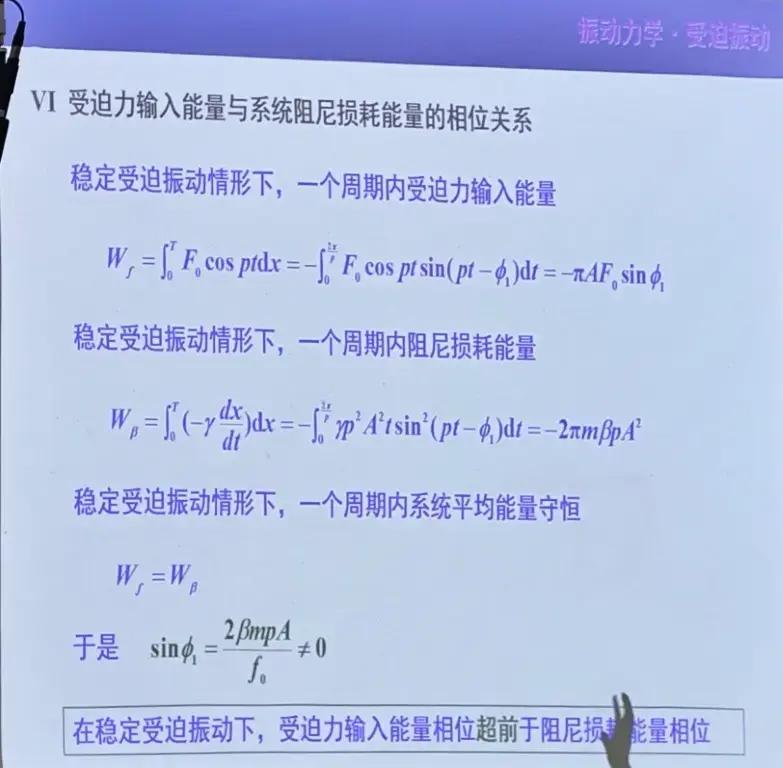 振动力学·受迫振动
VI 受迫力输入能量与系统阻尼损耗能量的相位关系
稳定受迫振动情形下，一个周期内受迫力输入能量
W_f = ∫_0^T F_0 cos ptdx = -∫_0^{2π/p} F_0 cos pt sin(pt - ϕ_1)dt = -πAF_0 sin ϕ_1
稳定受迫振动情形下，一个周期内阻尼损耗能量
W_β = ∫_0^T (-γ dx/dt)dx = -∫_0^{2π/p} γp^2 A^2 t sin^2(pt - ϕ_1)dt = -2πmβpA^2
稳定受迫振动情形下，一个周期内系统平均能量守恒
W_f = W_β
于是 sin ϕ_1 = 2βmpA / f_0 ≠ 0
在稳定受迫振动下，受迫力输入能量相位超前于阻尼损 能量相位